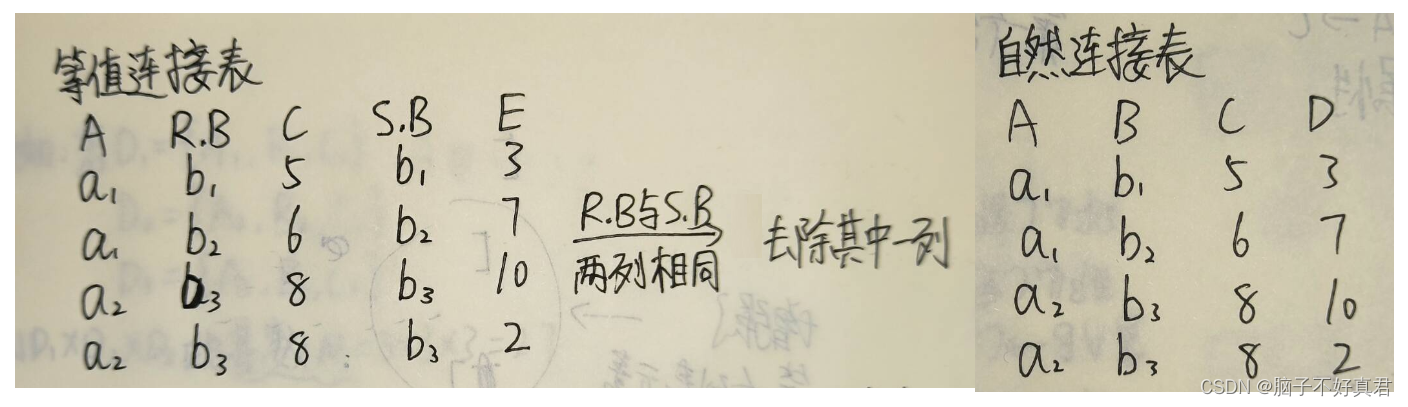 等值连接表
A R.B C S.B E
a₁ b₁ 5 b₁ 3
a₁ b₂ 6 b₂ 7
a₂ b₃ 8 b₃ 10
a₂ b₃ 8 b₃ 2
R.B与S.B
两列相同
去除其中一列
自然连接表
A B C D
a₁ b₁ 5 3
a₁ b₂ 6 7
a₂ b₃ 8 10
a₂ b₃ 8 2
CSDN @脑子不好真君